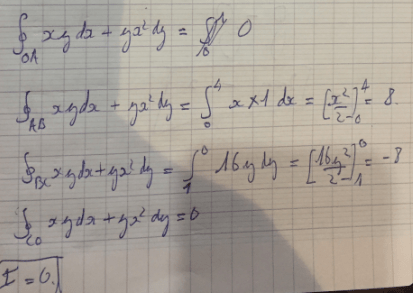 ∮_OA xy dx + yx² dy = 0
∮_AB xy dx + yx² dy = ∫_0^4 x × 1 dx = [x²/2]_0^4 = 8.
∮_BC xy dx + yx² dy = ∫_1^0 16 y dy = [16y²/2]_1^0 = -8
∮_CO xy dx + yx² dy = 0
I = 0.